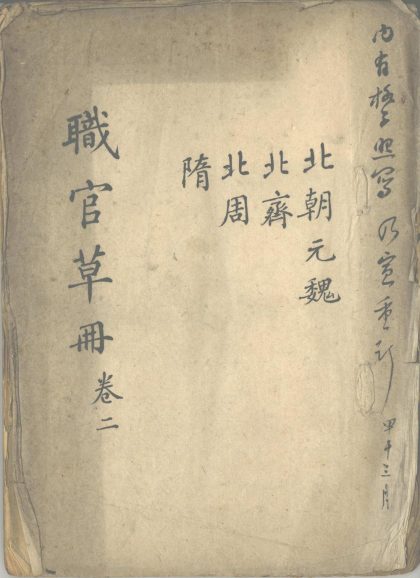 内有格子照寫 宜重訂 甲午三月
北朝元魏
北齊
北周
隋
職官草冊 卷二